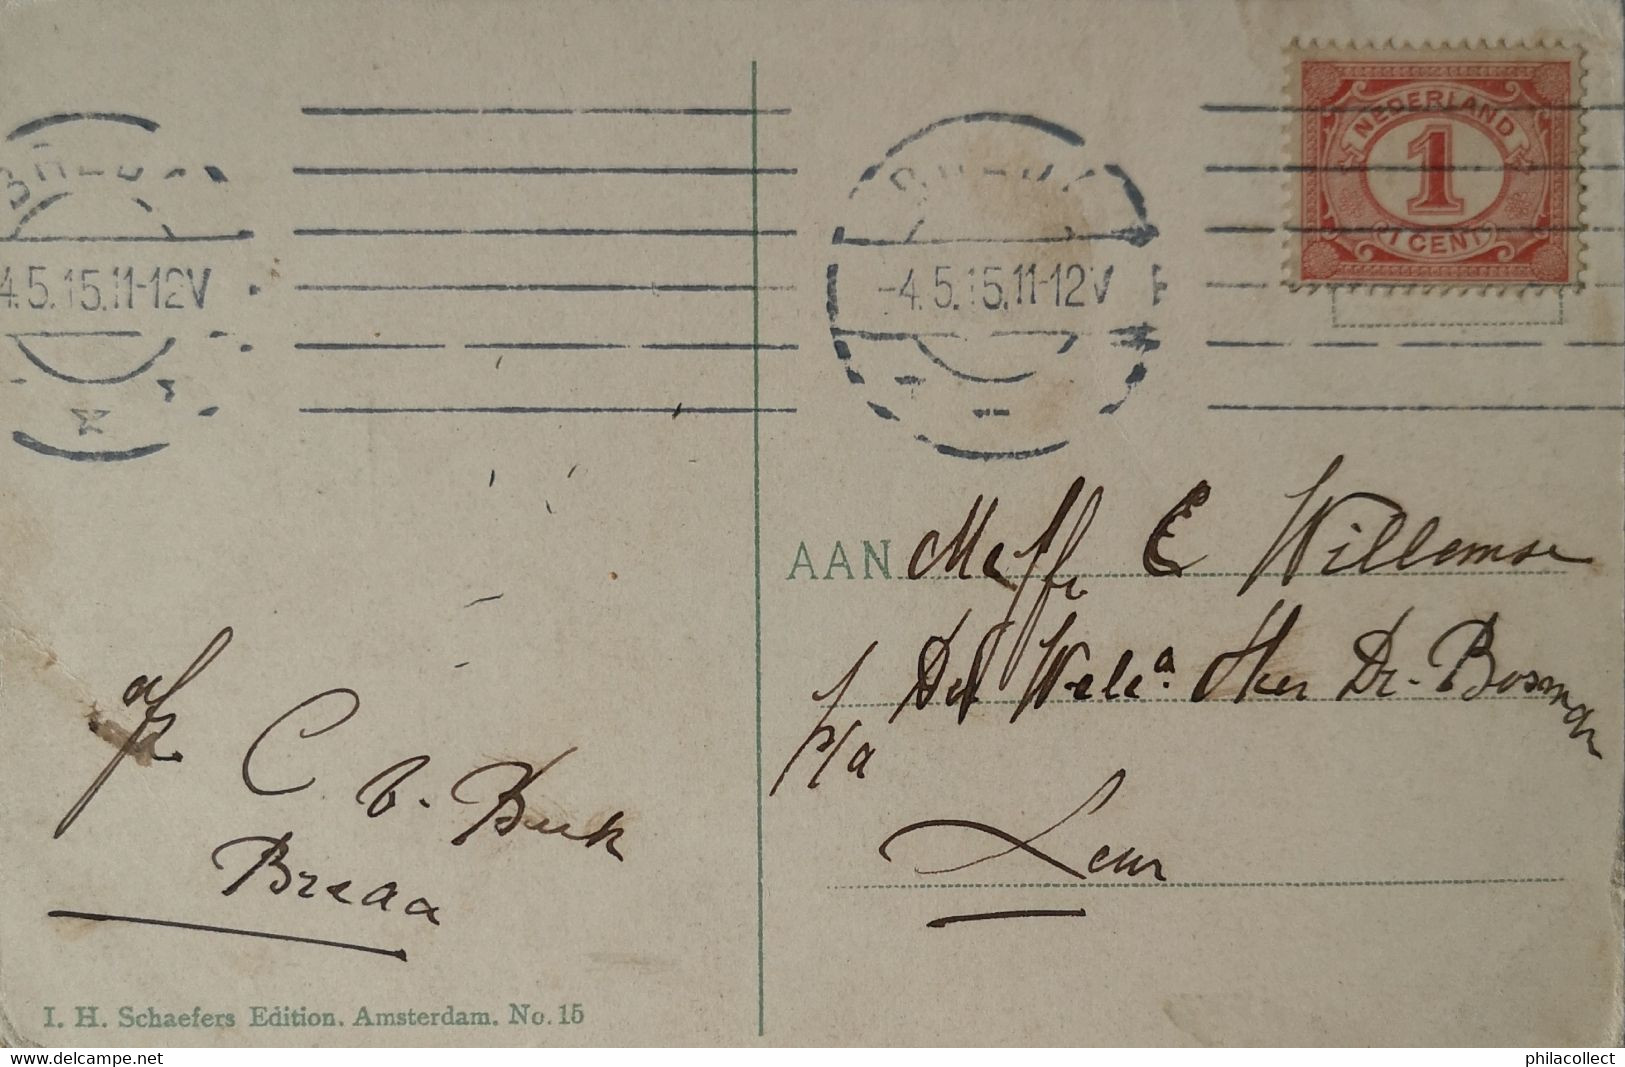 BREDA
4.5.15.11-12V
BREDA
-4.5.15.11-12V
NEDERLAND
1
1 CENT
AAN Mejfr. C Willemse
Bosman
p/a
Leur
afz.
C v. Buek
Breda
I. H. Schaefers Edition. Amsterdam. No. 15
www.delcampe.net
philacollect